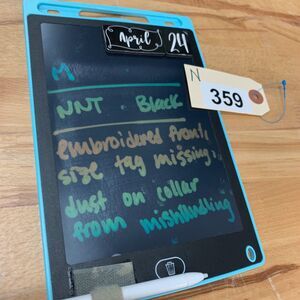 April 24
N
359
M
NNT . Black
embroidered front,
size tag missing,
dust on collar
from mishandling